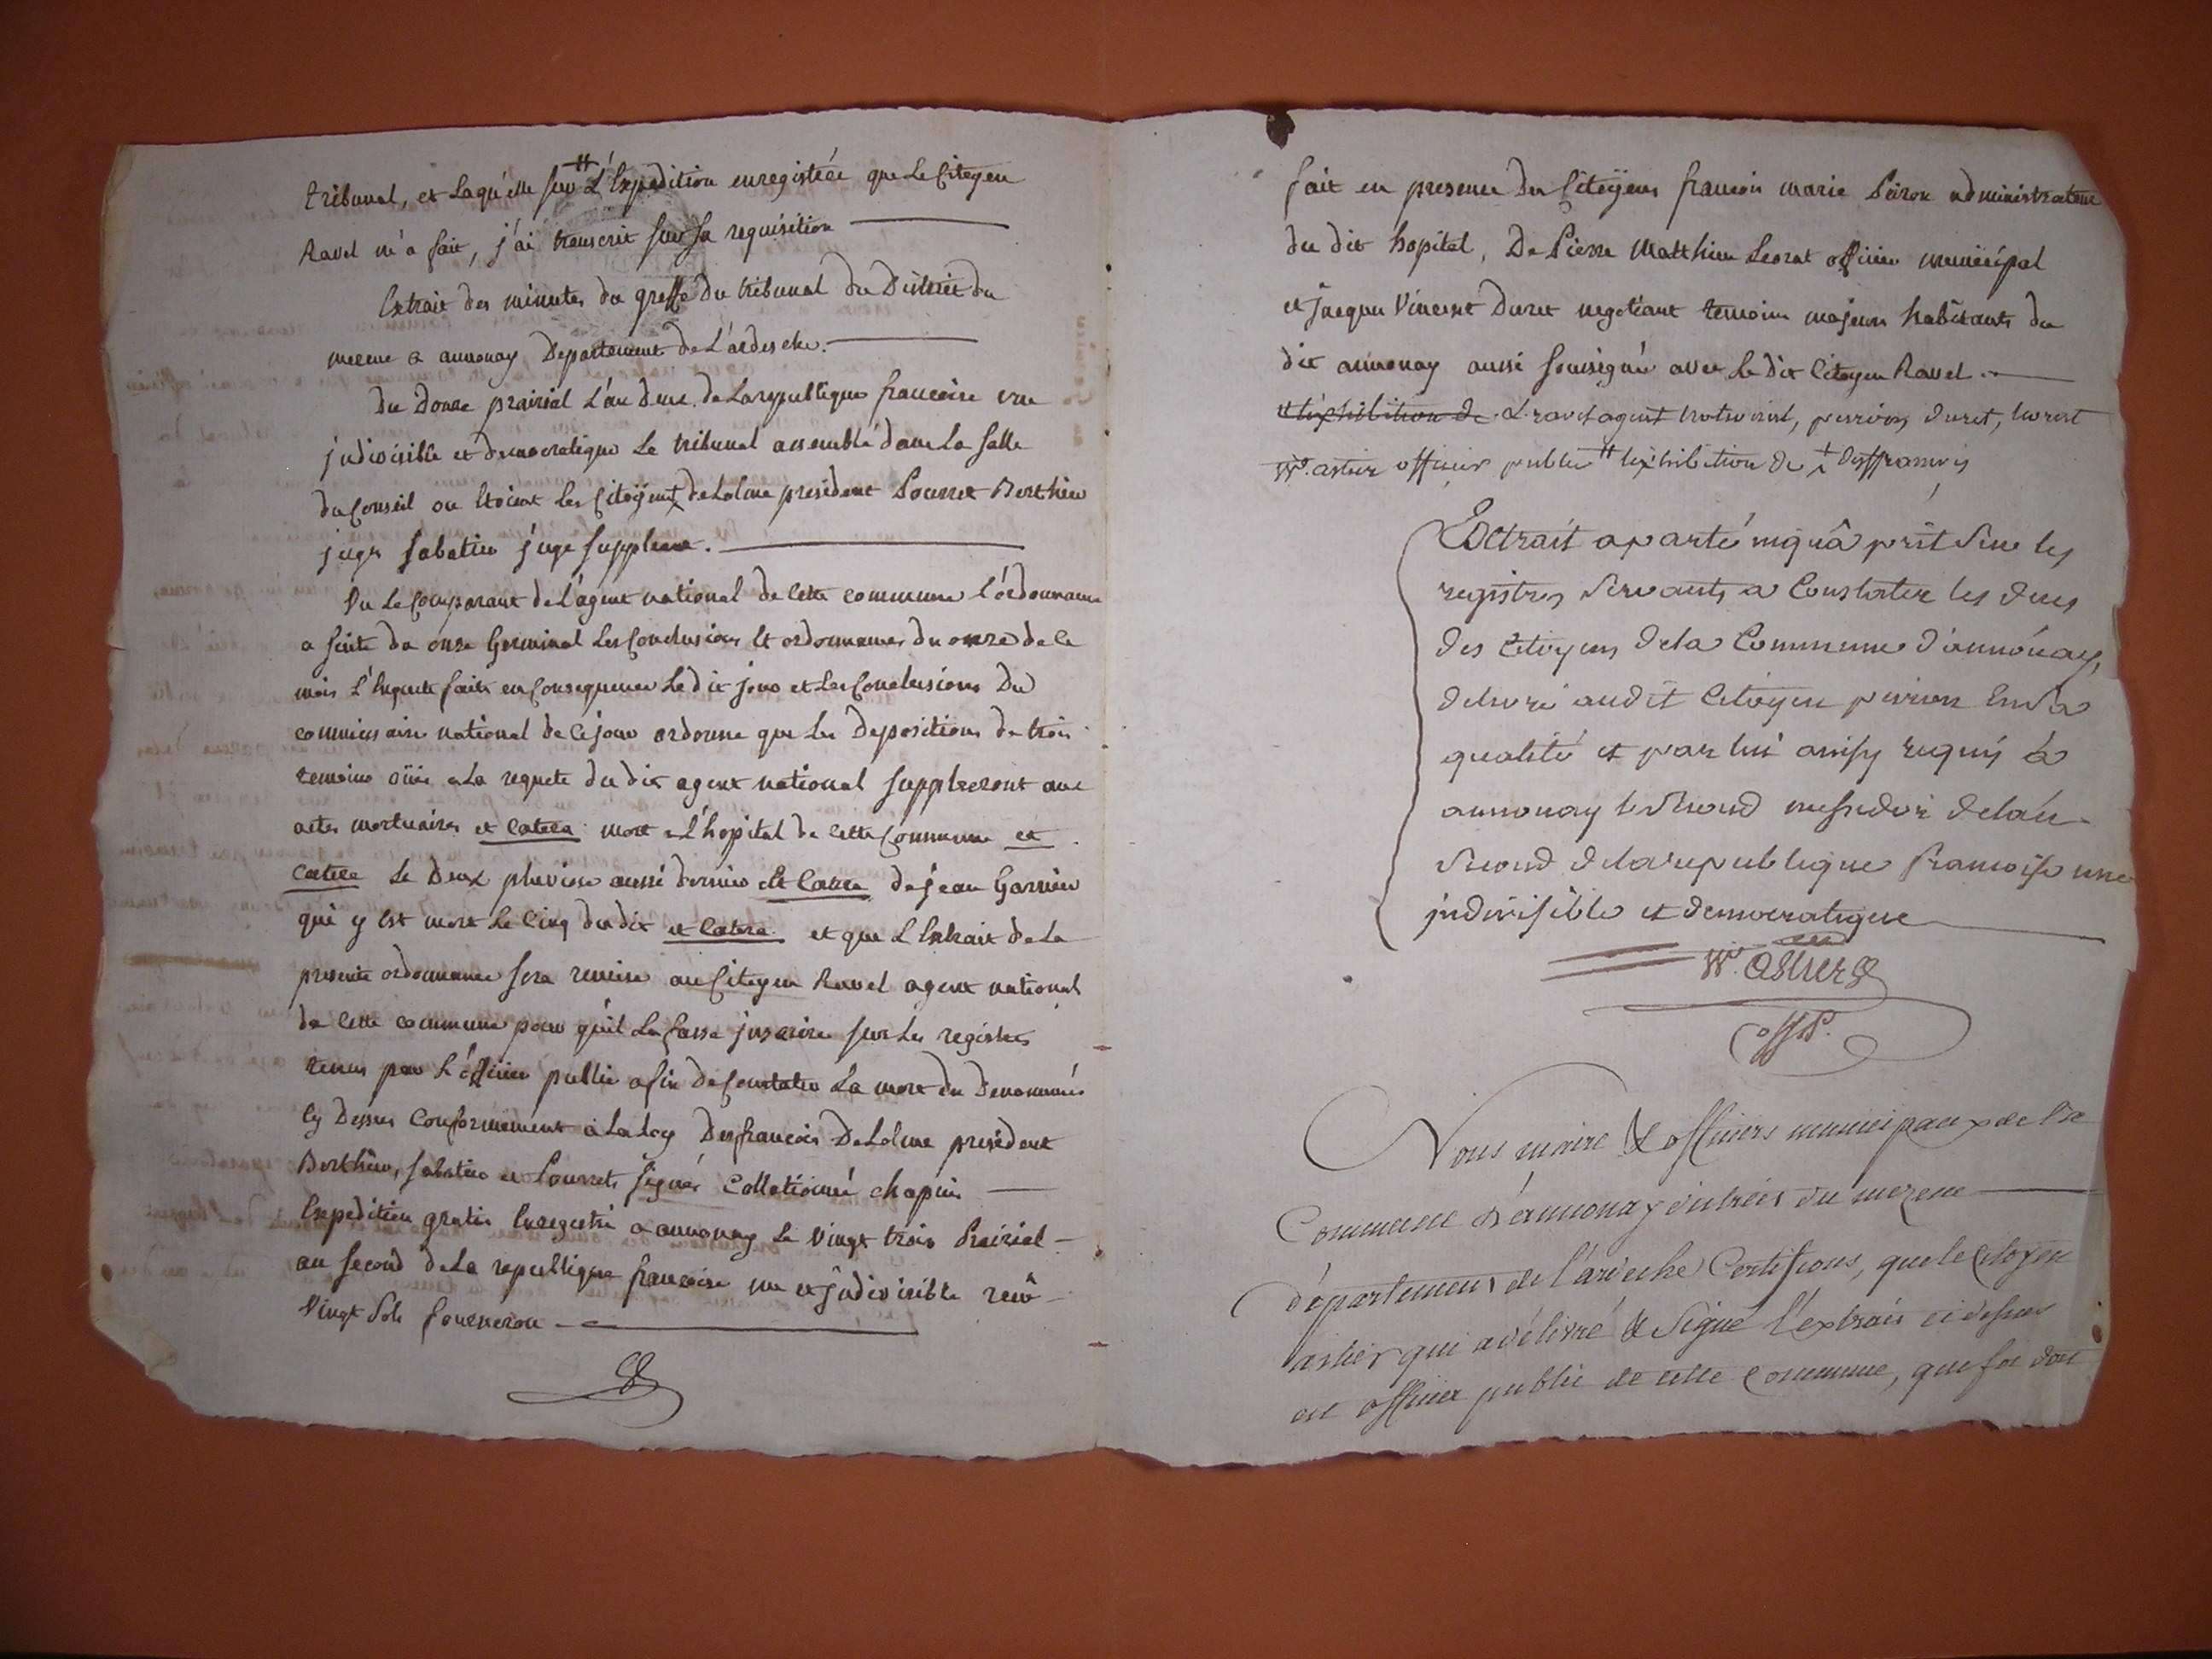 tribunal, et laqu'elle sur # L'Expedition enregistrée que Le Citoyen
Ravel m'a fait, j'ai transcrit sur sa requisition
Extrait des minutes du greffe du tribunal du District du
mezenc a annonay Departement de L'ardesche.
Du Douze prairial L'an deux de La republique francoise une
indivisible et democratique Le tribunal assemblé dans La salle
du Conseil ou Etoient Les Citoÿens Delolme president Pourret Berthieu
juges Sabatier juge suppleant.
Vu Le Comparant de L'agent national de Cette commune L'ordonnance
a suite du onze Germinal Les Conclusions Et ordonnances du onze de Ce
mois L'Enquete faite en Consequence Le dit jour et Les Conclusions Du
commissaire national de Ce jour ordonne que Les Depositions de trois
temoins oüis a La requete du dit agent national suppleeront aux
actes mortuaires et Catera mort a L'hopital de Cette Commune et
Catera Le Deux pluviose aussi dernier et Catera de jean Garnier
qui y Est mort Le Cinq du dit et Catera et que L'Extrait de La
presente ordonnance sera remise au Citoyen Ravel agent national
de Cette commune pour qu'il La fasse inscrire sur Les registres
tenus par L'officier public afin de Constater La mort du Denommés
Cy Dessus Conformement a La Loy Desfrancois Delolme president
Berthieu, Sabatier et Pourret signés Collationné chapuis
Expedition gratis Enregistré a annonay Le Vingt trois Prairial
an second de La republique francoise une et indivisible reçu
Vingt Sols fourneron
fait en presence Du Citoÿens francois marie Peiron administrateur
du dit hopital, De Pierre Matthieu Leorat officier municipal
et Jacques Vincent Duret negotiant temoins majeurs habitants du
dit annonay aussi soussignés avec Le dit Citoyen Ravel.
et Exhibition de L. ravel agent national, peirron, duret, leorat
astier officier public # Exhibition de + Desfrancois
Extrait aparté in quâ prit sur les
registres servants a Constater les deces
des Citoyens de la Commune d'annonay,
delivré audit Citoyen peirron En sa
qualité et par lui ainsy requis a
annonay le second messidor de l'an
second de la republique francoise une
indivisible et democratique
astier
off. P.
Nous maire & officiers municipaux de la
Commune d'annonay district du mezenc
département de l'ardeche Certifions, que le citoyen
astier qui a délivré & signé l'extrait ci dessus
est officier public de cette Commune, que foi doit